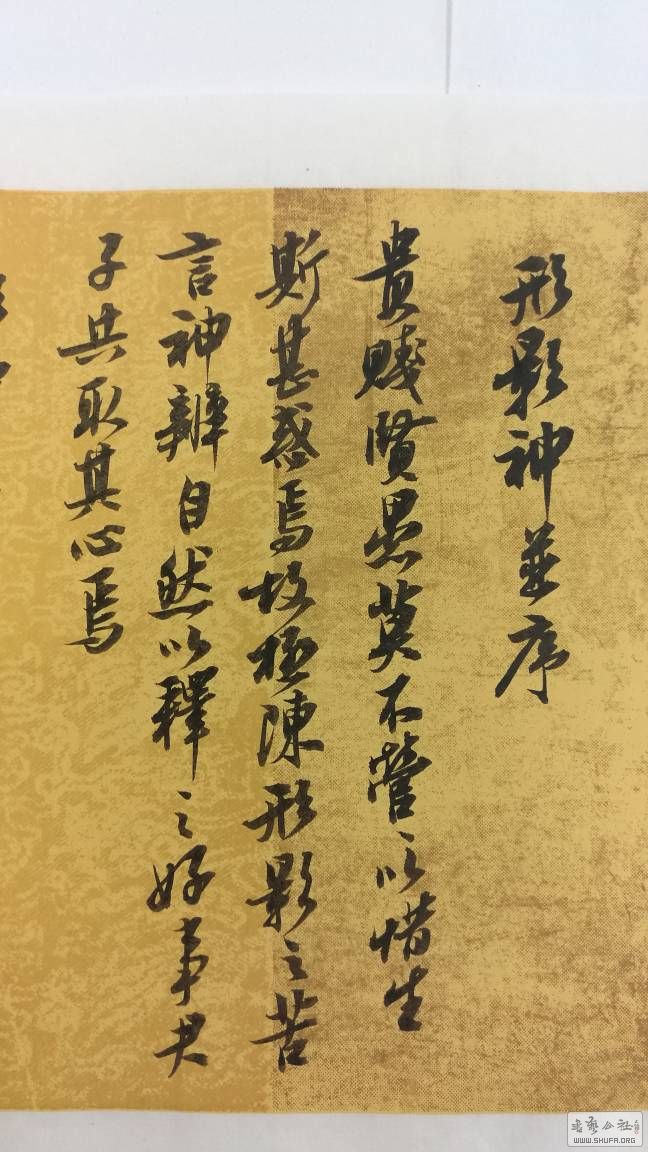 形影神並序
貴賤賢愚莫不營々以惜生
斯甚惑焉故極陳形影之苦
言神辨自然以釋之好事君
子共取其心焉
書藝公社
WWW.SHUFA.ORG